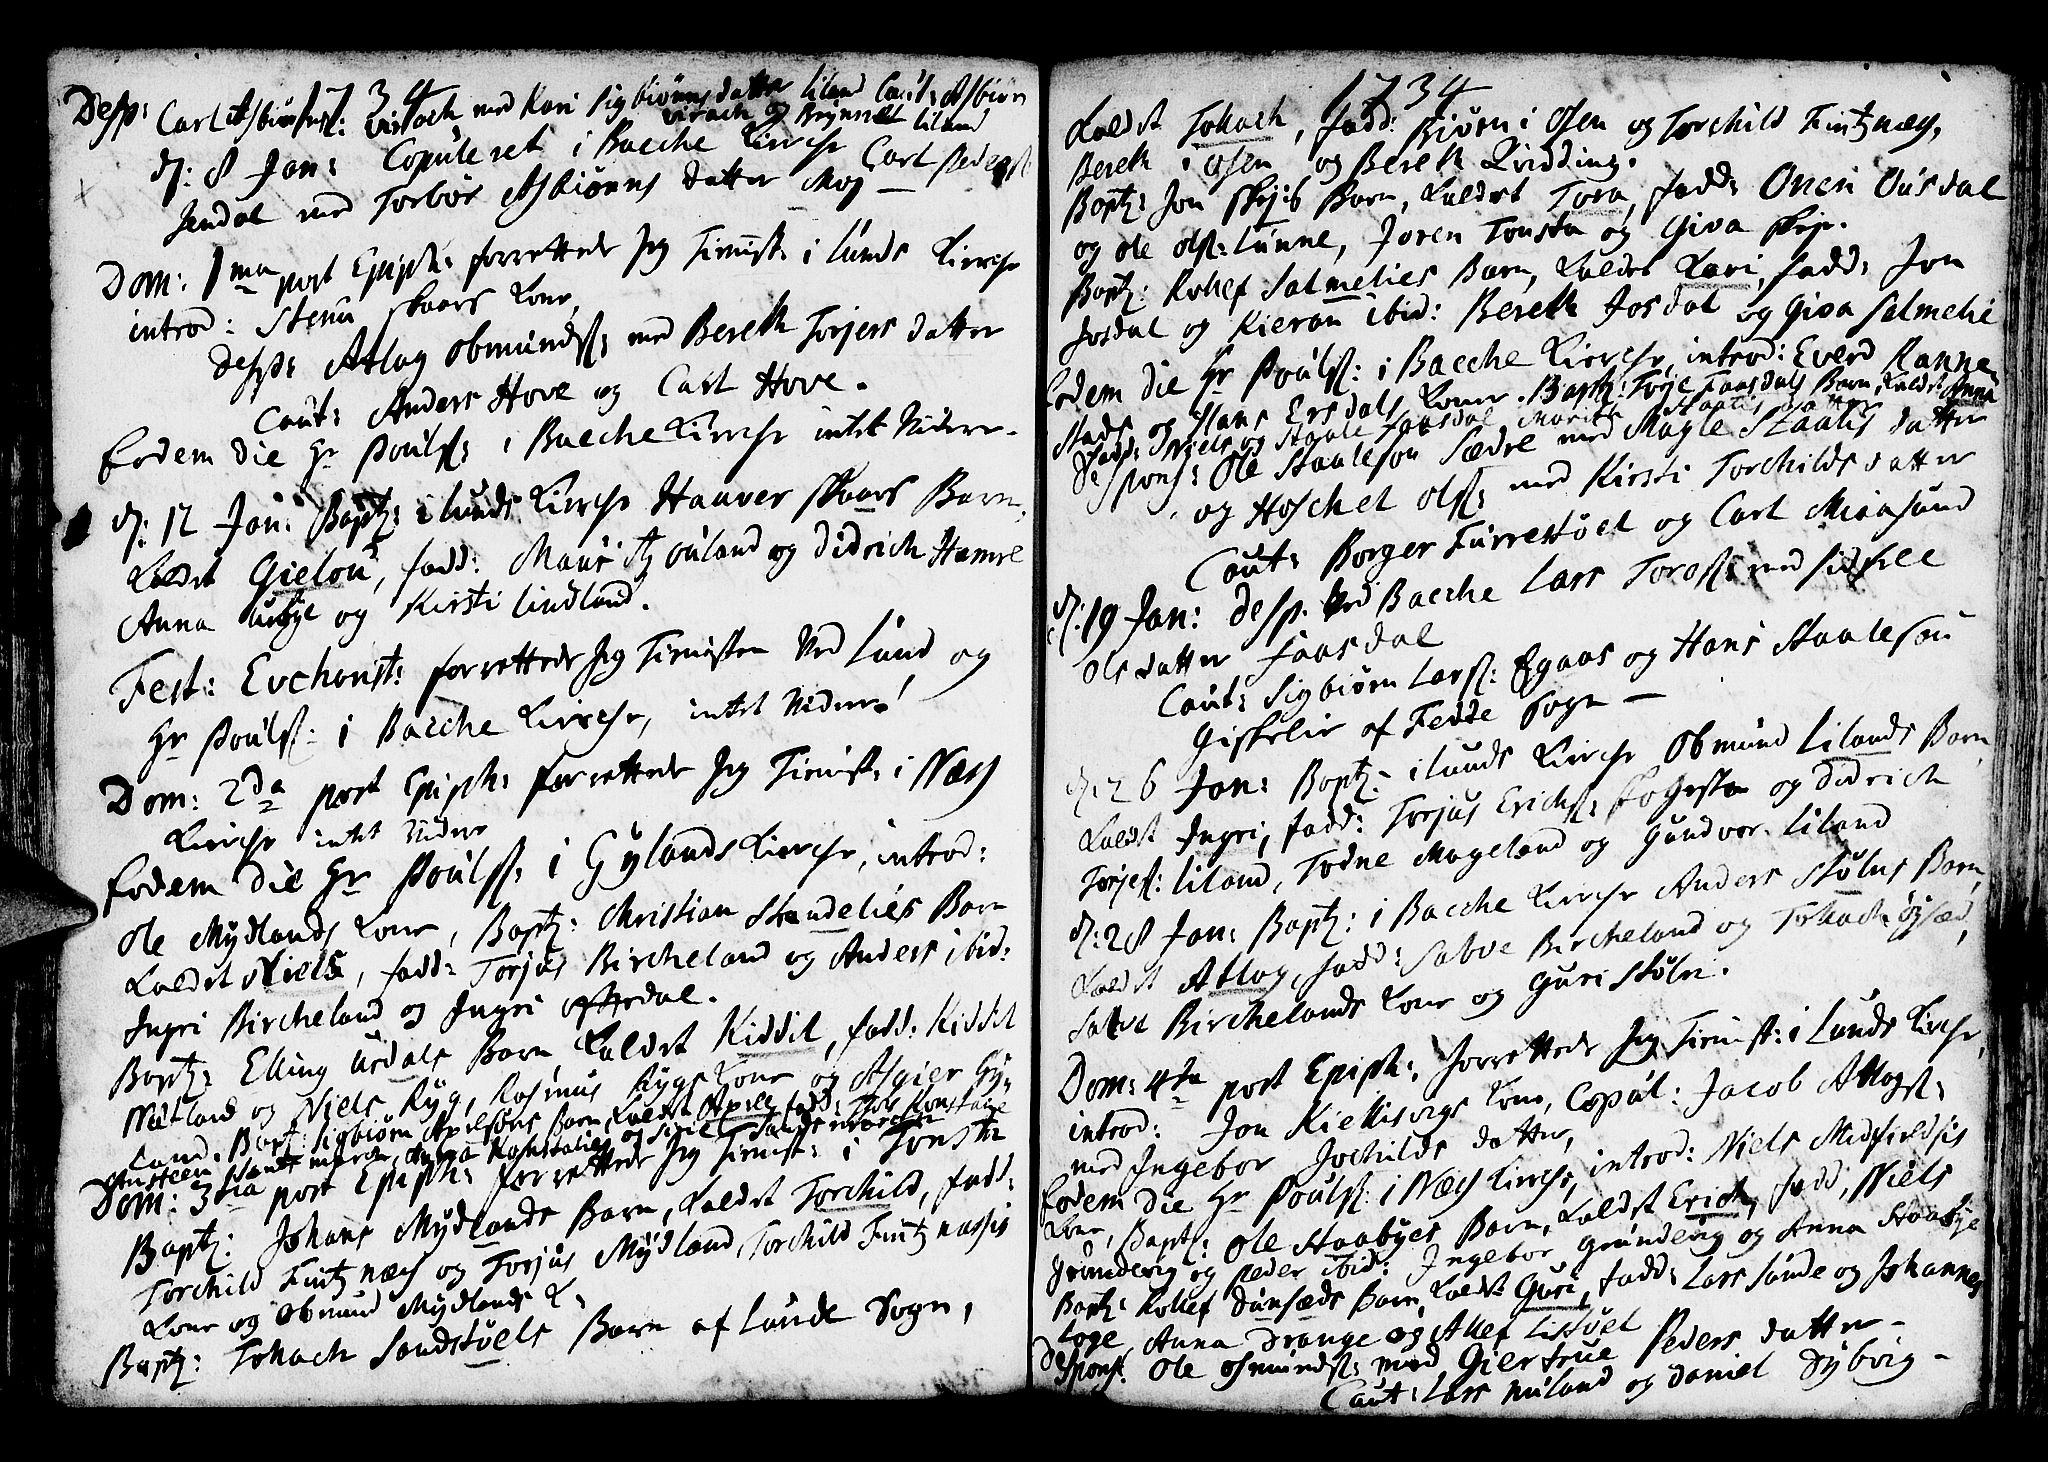 1734
Desp: Carl Asbiørnss: med Kari Sigbiørns datter Liland Caut: Asbiørn
Virach og Brynild Liland
d: 8 Jan: Copuleret i Bacche Kirche Carl Peders:
Jendal med Torbør Asbiørns datter Moj —
Dom: 1ma post Epiph: forrettede Jeg Tienist: i Lunds Kirche
introd: Stenu Skaars Kone,
Desp: Atlag Obmundss: med Bereth Torjers datter
Caut: Anders Hove og Carl Hove.
Eodem die Hr Poulss: i Bacche Kirche intet Videre.
d: 12 Jan: Bapt: i Lunds Kirche Haaver Skaars Barn,
Kaldet Gielou, fadd: Mauritz Ouland og Didrich Hamre
Anna Ubye og Kirsti Lindland.
Fest: Evchorist: forrettede Jeg Tienisten Ved Lund og
Hr Poulss: i Bacche Kirche, intet Videre!
Dom: 2da post Epiph: forrettede Jeg Tienist: i Næss
Kirche intet Videre
Eodem die Hr Poulss: i Gylands Kirche, introd:
Ole Mydlands Kone, Bapt: Christian Standelies Barn
Kaldet Niels, fadd: Torjus Bircheland og Anders ibid:
Ingri Bircheland og Ingri Ostedal.
Bapt: Elling Ursdals Barn Kaldet Kiddil, fadd: Kiddil
Netland og Niels Ryg, Rasmus Rygs Kone og Asgier Gy-
land. Bapt: Sigbiørn Apelsøns Barn, Kaldet Apele, fadd: Thor
Austeen Sandsmarch, Anna og Siri Sandsmarch
Dom: 3tia post Epiph: forrettede Jeg Tienist: i Tonsta
Bapt: Johans Mydlands Barn, Kaldet Torchild, fadd:
Torchild Fintznæs og Torjus Mydland, Torchild Fintznæssis
Kone og Obmund Mydlands K:
Bapt: Tollach Sandstøels Barn af Lunde Sogn,
1734
Kaldet Tollach, fadd: Biørn i Osen og Torchild Fintznæs,
Bereth i Osen og Bereth Qvidding.
Bapt: Jon Skejs Barn, Kaldet Tora, fadd: Onen Ousdal
og Ole Olss: Lunne, Joren Tonsta og Giva Skej.
Bapt: Rollef Salmelies Barn, Kaldet Kari, fadd: Jon
Josdal og Kieran ibid: Bereth Josdal og Giva Salmelie
Eodem die Hr Poulss: i Bacche Kirche, introd: Everd Rannes
Stads og Hans Ersdals Koner. Bapt: Torje Faasdals Barn, Kaldet Anna
fadd: Niels og Staale Faasdal Marith Staalis datter
Despons: Ole Staaleson Sædre med Magle Staalis datter
og Hoschel Olss: med Kirsti Torchilds datter
Caut: Borger Furrestøel og Carl Moensund
d: 19 Jan: Desp. Ved Bacche Lars Torass: med Sidsele
Ols datter Faasdal
Caut: Sigbiørn Larss: Egaas og Hans Staaleson
Giskelie af Fedde Sogn —
d: 26 Jan: Bapt: i Lunds Kirche Obmund Lilands Barn
Kaldet Ingri, fadd: Torjus Erichss: og Didrich
Torjess: Liland, Todne Mageland og Gundvor Liland
d: 28 Jan: Bapt: i Bacche Kirche Anders Stølns Barn,
Kaldet Atlag, fadd: Salve Bircheland og Tollach Øysæd,
Salve Birchelands Kone og Guri Stølen.
Dom: 4ta post Epiph: forrettede Jeg Tienist: i Lunds Kirche,
introd: Jon Kiellisvigs Kone, Copul: Jacob Atlagss:
med Ingebor Jochilds datter,
Eodem die Hr Poulss: i Næss Kirche, introd: Niels Midsieldsis
Kone, Bapt: Ole Staabyes Barn, Kaldet Erich, fadd, Niels
Grunderig og Peder ibid: Ingebor Grunderig og Anna Staabye
Bapt: Rollef Dunsæds Barn, Kaldt Guri, fadd: Lars Sunde og Johannes
Loge, Anna Drange og Allef Listøel
Despons: Ole Osmundss: med Giertrue Peders datter —
Caut: Lars Nuland og Daniel Dybvig —